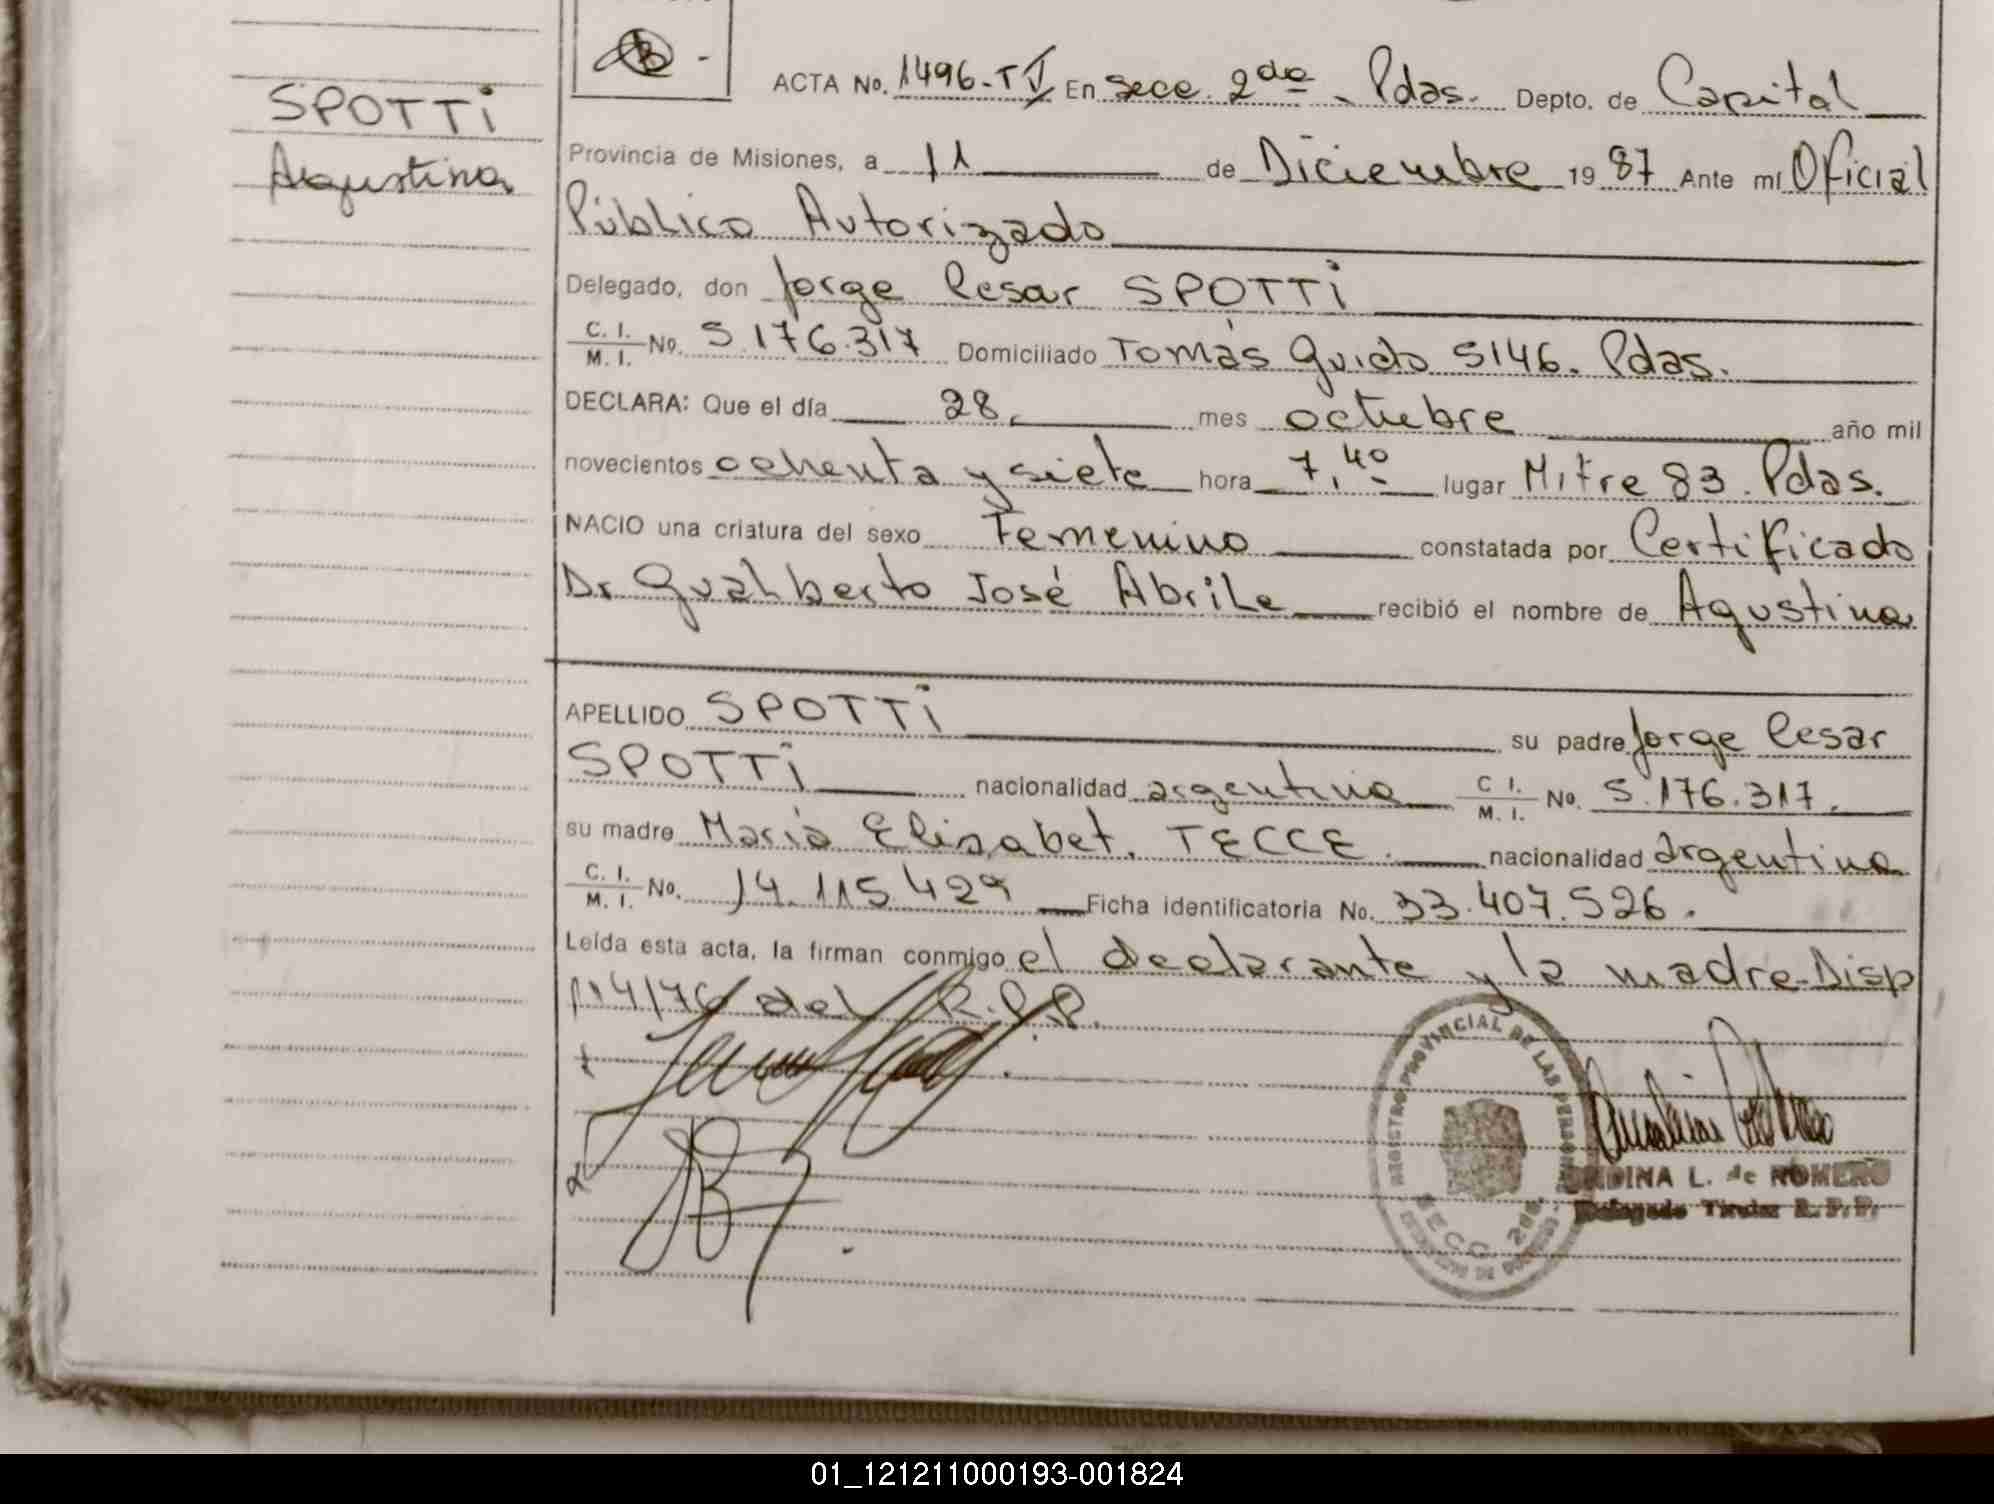 SPOTTi
Agustina
B -
ACTA No. 1496-TV En Secc. 2da - Pdas. Depto. de Capital
Provincia de Misiones, a 11 de Diciembre 19 87 Ante mí Oficial
Público Autorizado
Delegado, don Jorge Cesar SPOTTi
C. I. / M. I. No. 5.176.317 Domiciliado Tomás Guido 5146. Pdas.
DECLARA: Que el día 28. mes octubre año mil
novecientos ochenta y siete hora 7,40 lugar Mitre 83 Pdas.
NACIO una criatura del sexo Femenino constatada por Certificado
Dr Gualberto José Abrile recibió el nombre de Agustina
APELLIDO SPOTTi su padre Jorge Cesar
SPOTTi nacionalidad argentina C I. / M. I. No. 5.176.317.
su madre María Elisabet. TECCE. nacionalidad argentina
C. I. / M. I. No. 14.115.429 Ficha identificatoria No. 33.407.526.
Leída esta acta, la firman conmigo el declarante y la madre-Disp
114/76 del R.P.P.
REGISTRO PROVINCIAL DE LAS PERSONAS
SECC. 2da.
L. de ROMERO
Delegado Titular R. P. P.
01_121211000193-001824